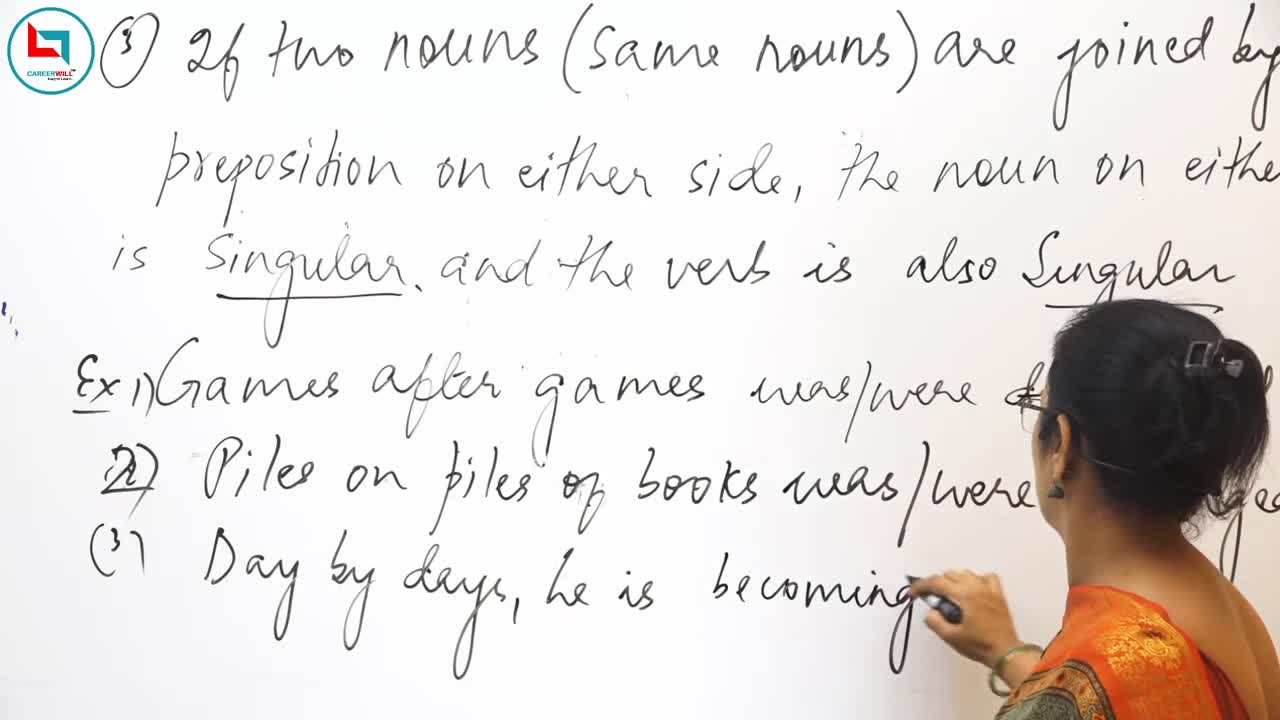 CAREERWILL
(3) If two nouns (same nouns) are joined by
preposition on either side, the noun on eithe
is Singular. and the verb is also Singular
Ex 1) Games after games was/were
2) Piles on piles of books was/were
(3) Day by days, he is becoming